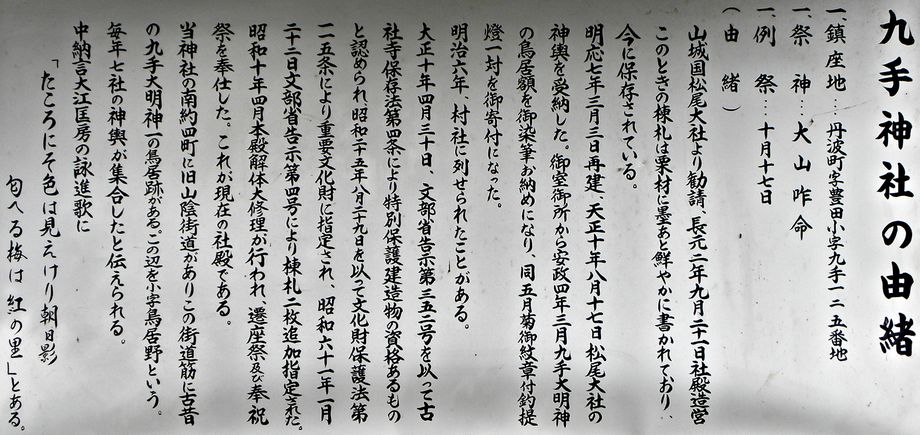 九手神社の由緒
一、鎮座地…丹波町字豊田小字九手一二五番地
一、祭　神…大山咋命
一、例　祭…十月十七日
（由　緒）
山城国松尾大社より勧請、長元二年九月二十一日社殿造営
このときの棟札は栗材に墨あと鮮やかに書かれており、
今に保存されている。
明応七年三月三日再建、天正十年八月十七日松尾大社の
神輿を受納した。御室御所から安政四年三月九手大明神
の鳥居額を御染筆お納めになり、同五月菊御紋章付釣提
燈一対を御寄付になった。
明治六年、村社に列せられたことがある。
大正十年四月三十日、文部省告示第三五二号を以って古
社寺保存法第四条により特別保護建造物の資格あるもの
と認められ、昭和二十五年八月二十九日を以って文化財保護法第
一一五条により重要文化財に指定され、昭和六十一年一月
二十二日文部省告示第四号により棟札二枚追加指定された。
昭和十年四月本殿解体大修理が行われ、遷座祭及び奉祝
祭を奉仕した。これが現在の社殿である。
当神社の南約四町に旧山陰街道がありこの街道筋に古昔
の九手大明神一の鳥居跡がある。この辺を小字鳥居野という。
毎年七社の神輿が集合したと伝えられる。
中納言大江匡房の詠進歌に
「たころにそ色は見えけり朝日影
匂へる梅は紅の里」とある。